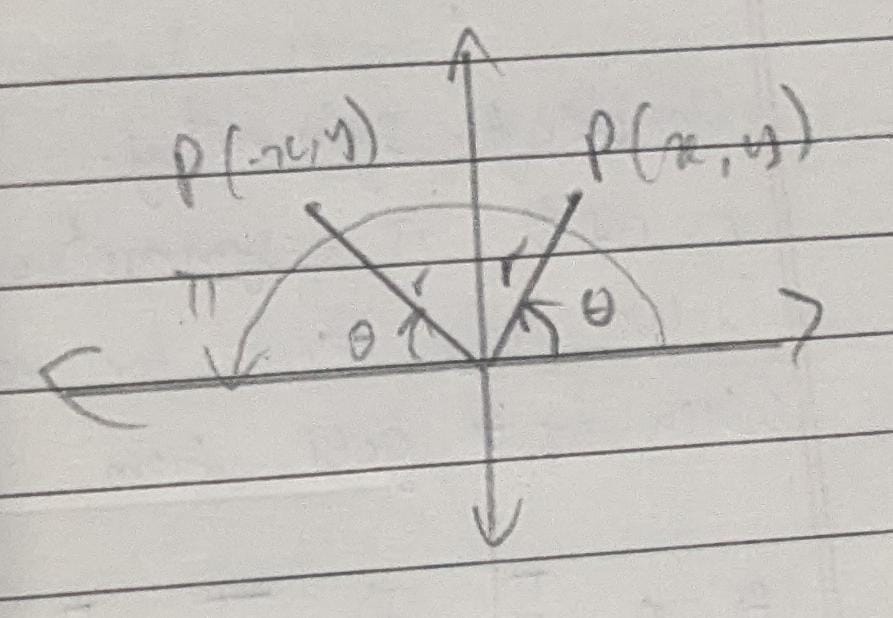 P(-x,y) P(x,y)
π r r
θ θ